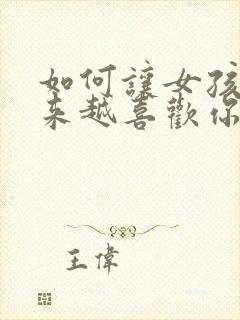 如何讓女孩
來越喜歡你
王偉